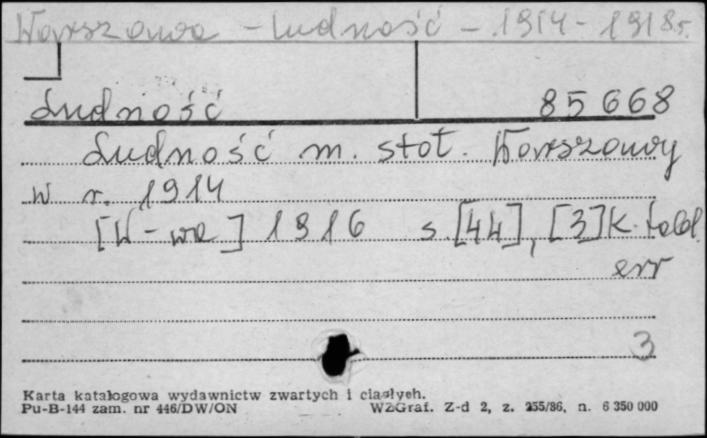 Warszawa - Ludność - 1914 - 1918 r.
Ludność 85668
Ludność m. stoł. Warszawy
w r. 1914
[W-wa] 1916 s. [44], [3] k. tabl.
err
3
Karta katalogowa wydawnictw zwartych i ciągłych.
Pu-B-144 zam. nr 446/DW/ON WZGraf. Z-d 2, z. 255/86, n. 6 350 000